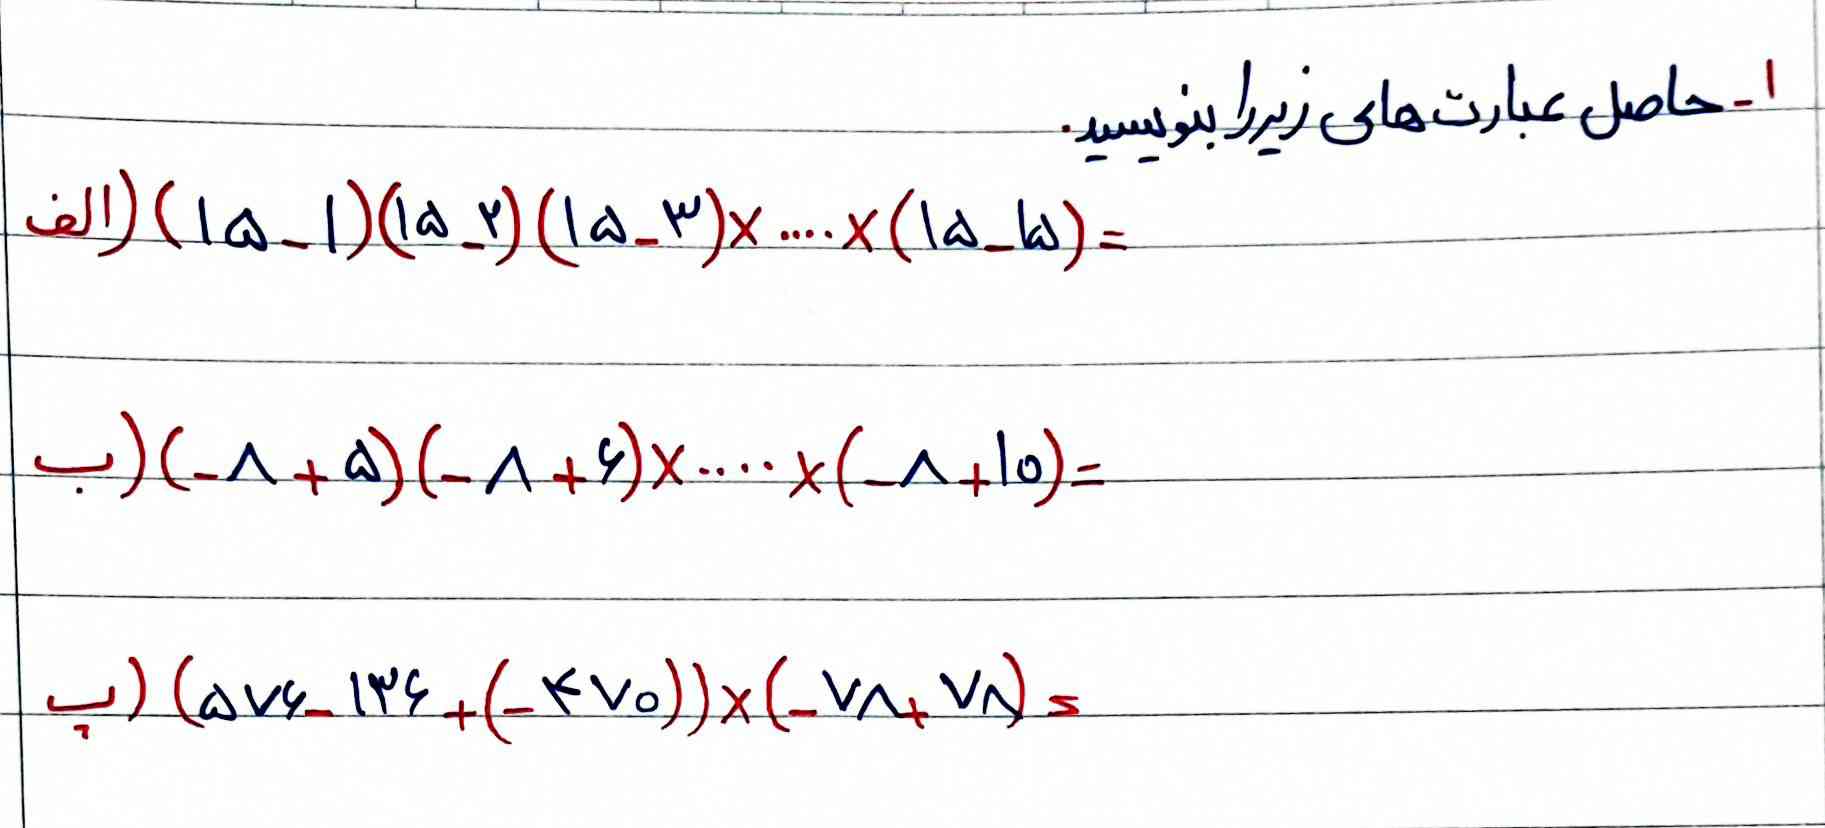 ۱- حاصل عبارت های زیر را بنویسید.
الف) (۱۵-۱)(۱۵-۲)(۱۵-۳)×....×(۱۵-۱۵)=
ب) (-۸+۵)(-۸+۶)×....×(-۸+۱۰)=
پ) (۵۷۶-۱۳۶+(-۴۷۰))×(-۷۸+۷۸)=